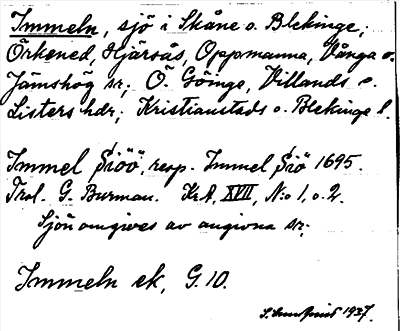 Immeln, sjö i Skåne o. Blekinge;
Örkened, Hjärsås, Oppmanna, Vånga o.
Jämshög sr; Ö. Göinge, Villands o.
Listers hdr; Kristianstads o. Blekinge l.
Immel Siöö, resp. Immel Siö 1695.
G. Burman. KrA XVII, N:o 1, o. 2.
Sjön omgives av angivna sr;
Immeln ek, G. 10.
1937.